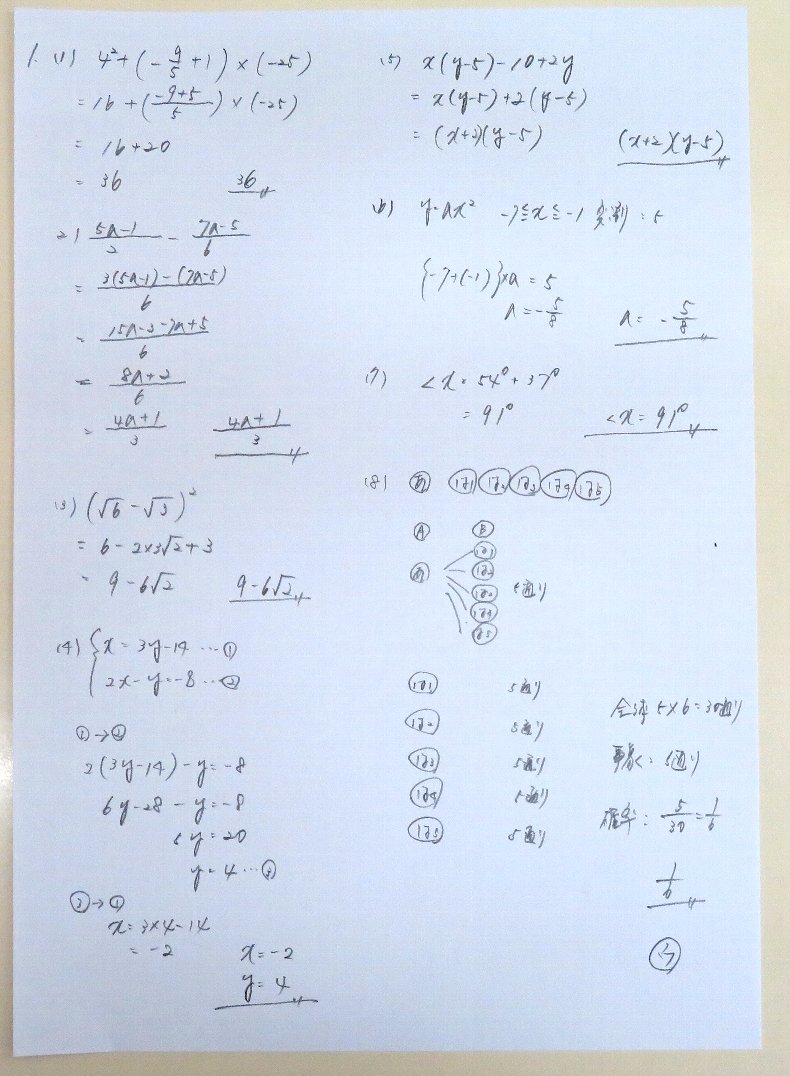 1. (1) 4²+(-9/5+1)×(-25)
=16+(-9+5/5)×(-25)
= 16+20
= 36 36
2) 5a-1/2 - 7a-5/6
= 3(5a-1)-(7a-5)/6
= 15a-3-7a+5/6
= 8a+2/6
= 4a+1/3 4a+1/3
(3) (√6-√3)²
= 6-2×3√2+3
= 9-6√2 9-6√2
(4) { x=3y-14 …①
2x-y=-8 …②
①→②
2(3y-14)-y=-8
6y-28-y=-8
5y=20
y=4 …③
③→①
x=3×4-14
= -2 x=-2
y=4
(5) x(y-5)-10+2y
= x(y-5)+2(y-5)
= (x+2)(y-5) (x+2)(y-5)
(6) y=ax² -7≦x≦-1 変割:5
{-7+(-1)}×a=5
a=-5/8 a=-5/8
(7) ∠x=54°+37°
=91° ∠x=91°
(8) あ は1 は2 は3 は4 は5
A B
あ は1
は2
は3 5通り
は4
は5
は1 5通り
は2 5通り
は3 5通り
は4 5通り
は5 5通り
全体 5×6=30通り
5通り
確率: 5/30=1/6
1/6